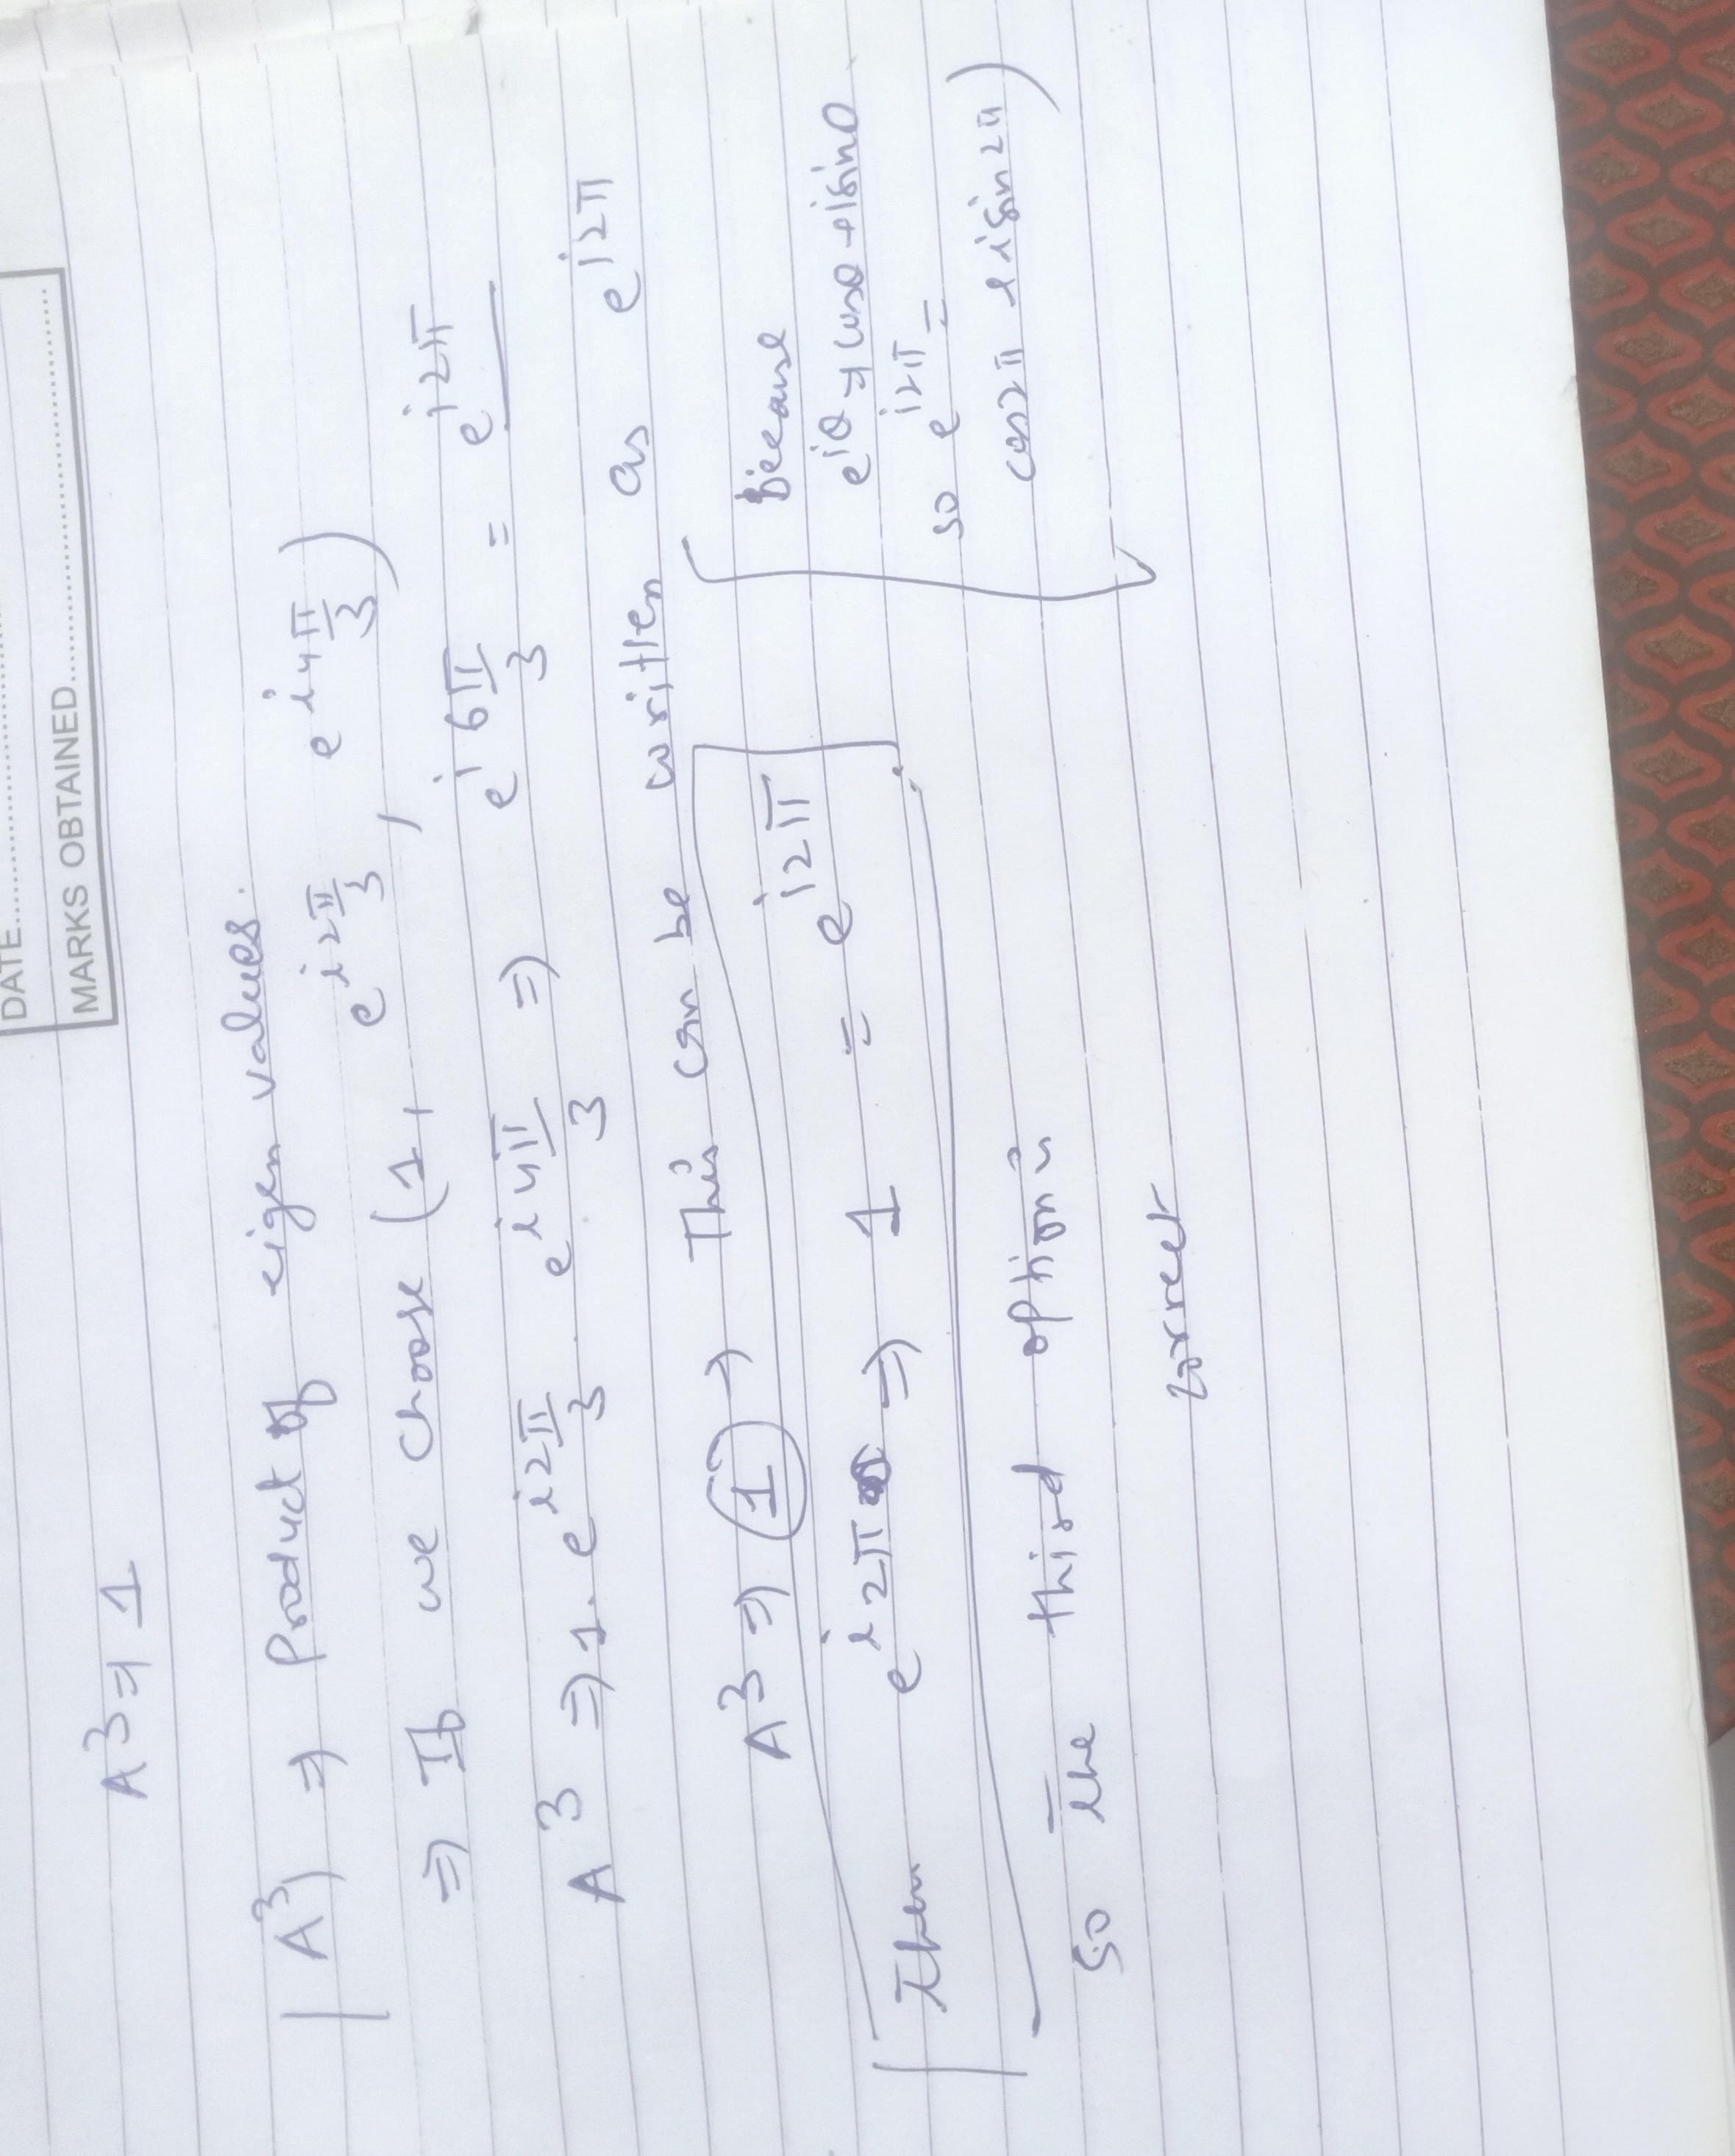 DATE..............
MARKS OBTAINED..............
A³ ⇒ 1
|A³| ⇒ Product of eigen values.
⇒ If we choose (1, e^{i2π/3}, e^{i4π/3})
A³ ⇒ 1. e^{i2π/3} . e^{i4π/3} ⇒ e^{i6π/3} = e^{i2π}
A³ ⇒ 1 → This can be written as e^{i2π}
then e^{i2π} ⇒ 1 = e^{i2π}
Because
e^{iθ} ⇒ cosθ + isinθ
so e^{i2π} =
cos2π + isin2π)
so the third option is
correct